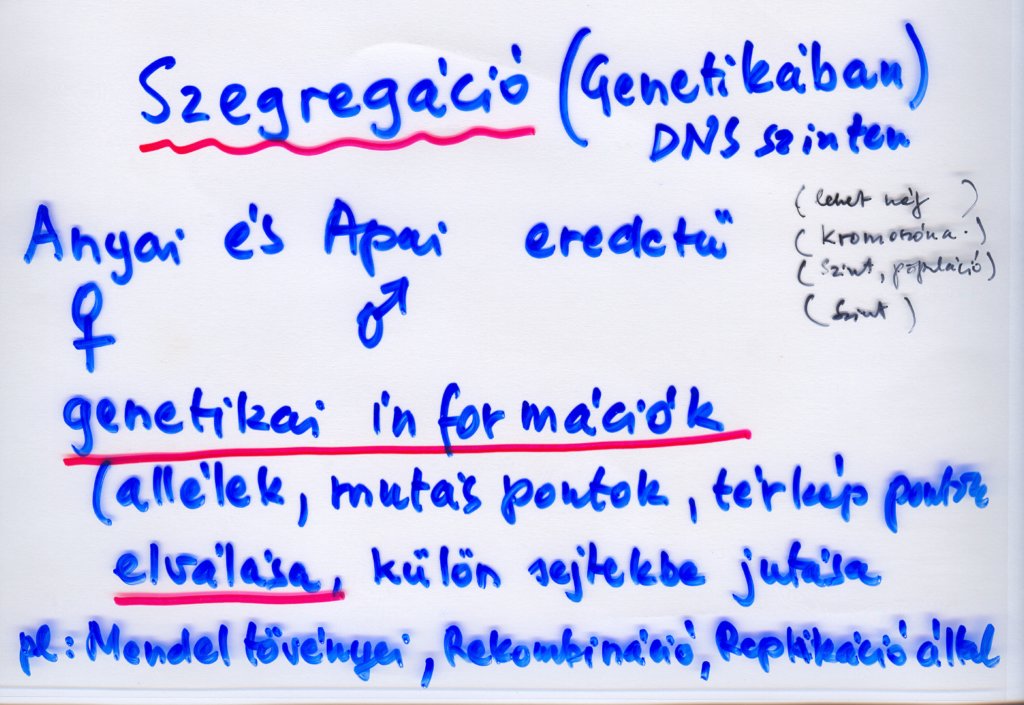 Szegregáció (Genetikában)
DNS szinten
Anyai és Apai eredetű
(lehet még )
(kromoszóma.)
(szint, populáció)
(szint)
♀ ♂
genetikai információk
(allélek, mutás pontok, térkép pontok
elválása, külön sejtekbe jutása
pl: Mendel tövényei, Rekombináció, Replikáció által